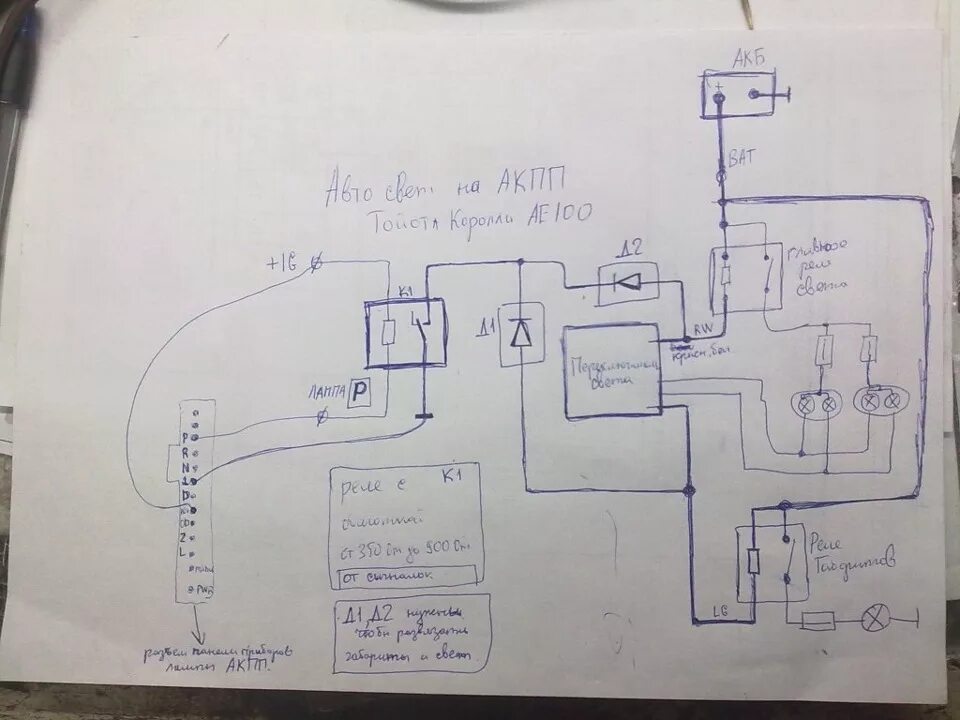 АКБ
+
ВАТ
Авто свет на АКПП
Тойота Королла АЕ100
+IG
К1
Д2
Д1
главное
реле
света
RW
красн. бел
Переключатель
света
ЛАМПА P
P
R
N
D
2
L
PWR
реле с К1
обмоткой
от 350 Ом до 900 Ом
от сигналок
Д1, Д2 нужны
чтобы развязать
габариты и свет.
Реле
Габаритов
LG
разъем панели приборов
лампы АКПП.